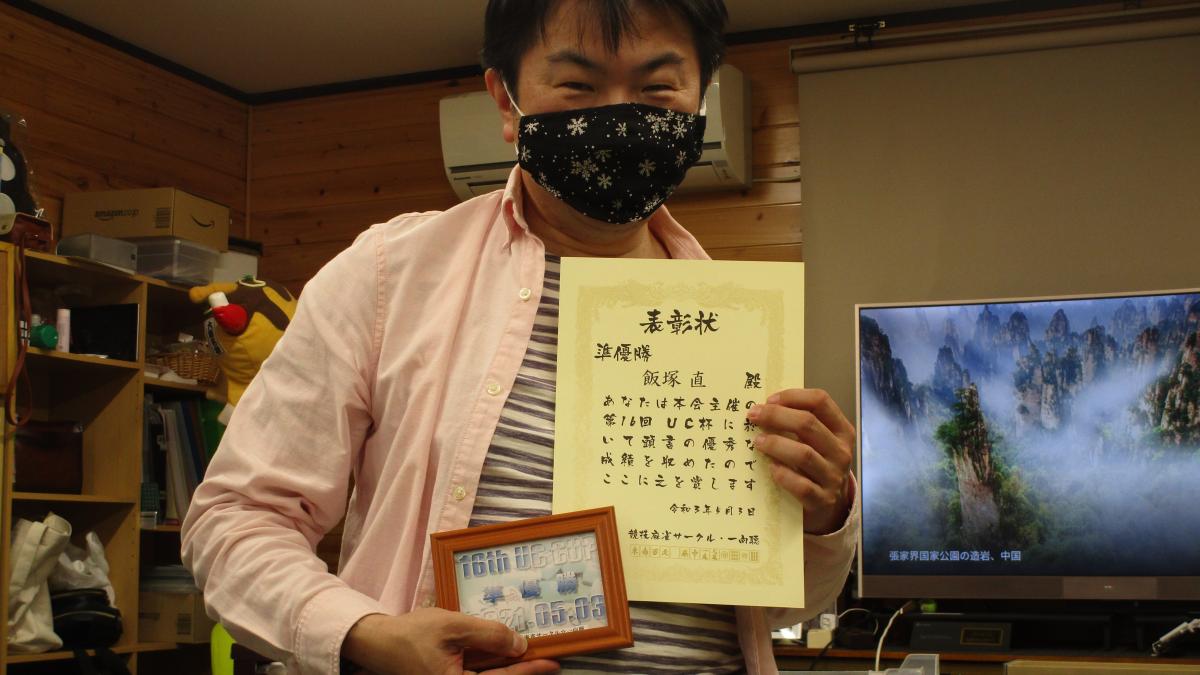 表彰状
準優勝
飯塚 直 殿
あなたは本会主催の
第16回 UC杯に於
いて頭書の優秀な
成績を収めたので
ここに之を賞します
令和3年5月3日
競技麻雀サークル・一向聴
16th UC CUP
準優勝
2021.05.03
張家界国家公園の造岩、中国
amazon